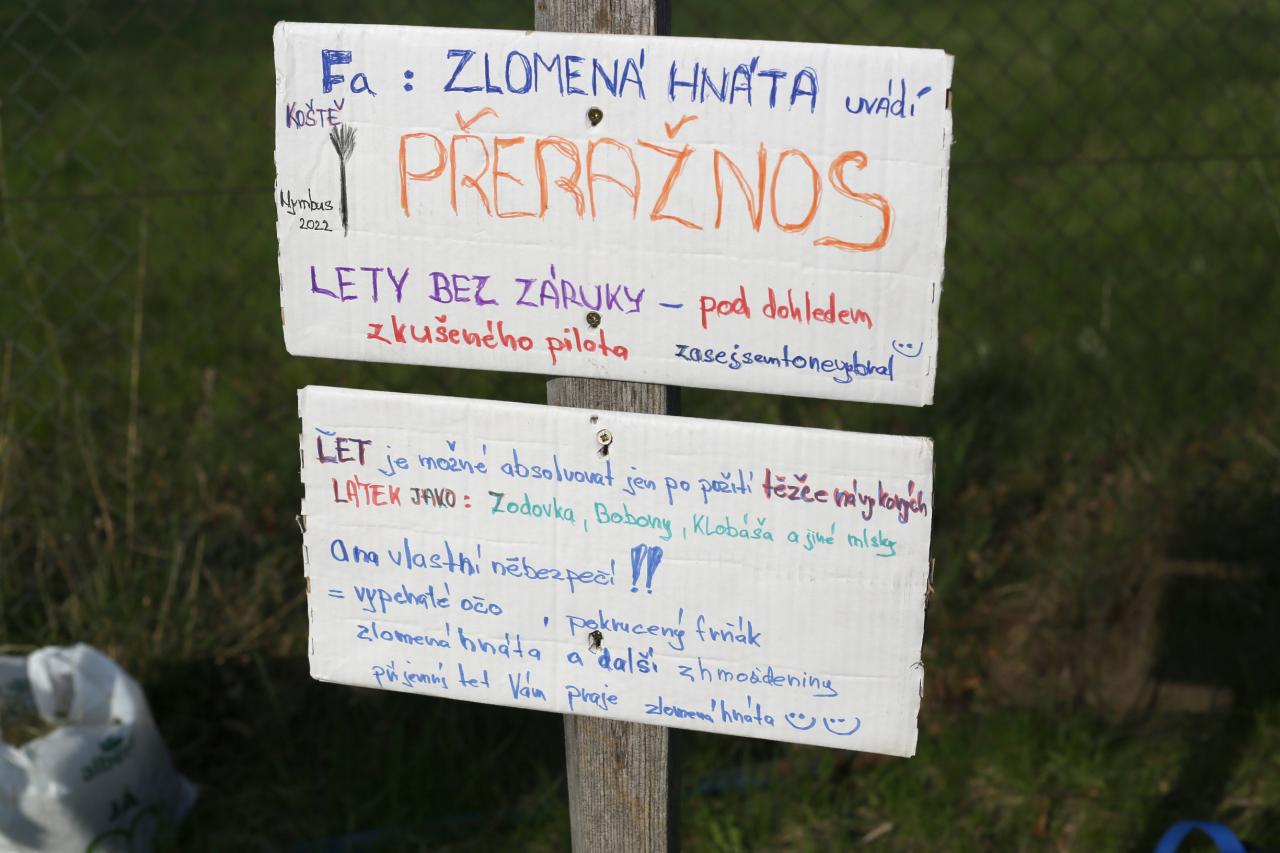 Fa : ZLOMENÁ HNÁTA uvádí
KOŠTĚ
PŘERAŽNOS
Nymbus
2022
LETY BEZ ZÁRUKY – pod dohledem
zkušeného pilota zasejsemtonevybral
LET je možné absolvovat jen po požití těžce návykových
LÁTEK JAKO: Zodovka, Bobovy, Klobáša a jiné mlsky
a na vlastní něbezpečí !!
= vypchaté očo , pokrucený frňák
zlomená hnáta a další zhmožděniny
příjemný let Vám praje zlomená hnáta
JÁ